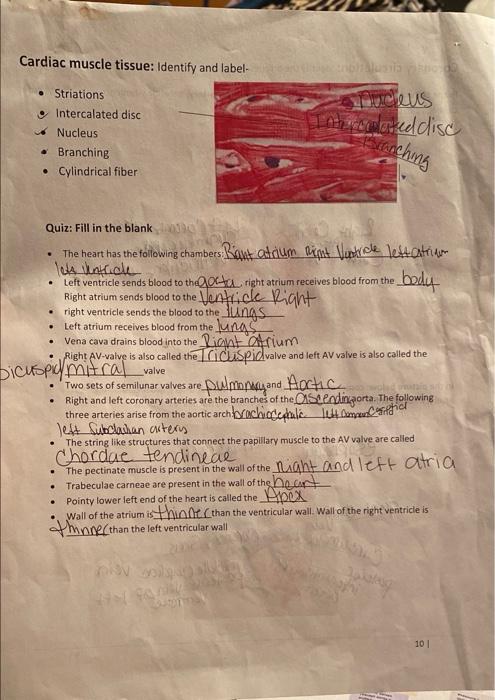 Cardiac muscle tissue: Identify and label-
• Striations
• Intercalated disc
• Nucleus
• Branching
• Cylindrical fiber
Nucleus
Intercalated disc
Branching
Quiz: Fill in the blank
• The heart has the following chambers: Right atrium Right Ventricle left atrium
left Ventricle
• Left ventricle sends blood to the aorta, right atrium receives blood from the body
Right atrium sends blood to the Ventricle Right
• right ventricle sends the blood to the lungs
• Left atrium receives blood from the lungs
• Vena cava drains blood into the Right atrium
• Right AV-valve is also called the Tricuspid valve and left AV valve is also called the
bicuspid/mitral valve
• Two sets of semilunar valves are pulmonary and Aortic
• Right and left coronary arteries are the branches of the Ascending aorta. The following
three arteries arise from the aortic arch brachiocephalic left common Carotid
left Subclavian arterys
• The string like structures that connect the papillary muscle to the AV valve are called
Chordae tendineae
• The pectinate muscle is present in the wall of the right and left atria
• Trabeculae carneae are present in the wall of the heart
• Pointy lower left end of the heart is called the Apex
• Wall of the atrium is thinner than the ventricular wall. Wall of the right ventricle is
thinner than the left ventricular wall
10 |